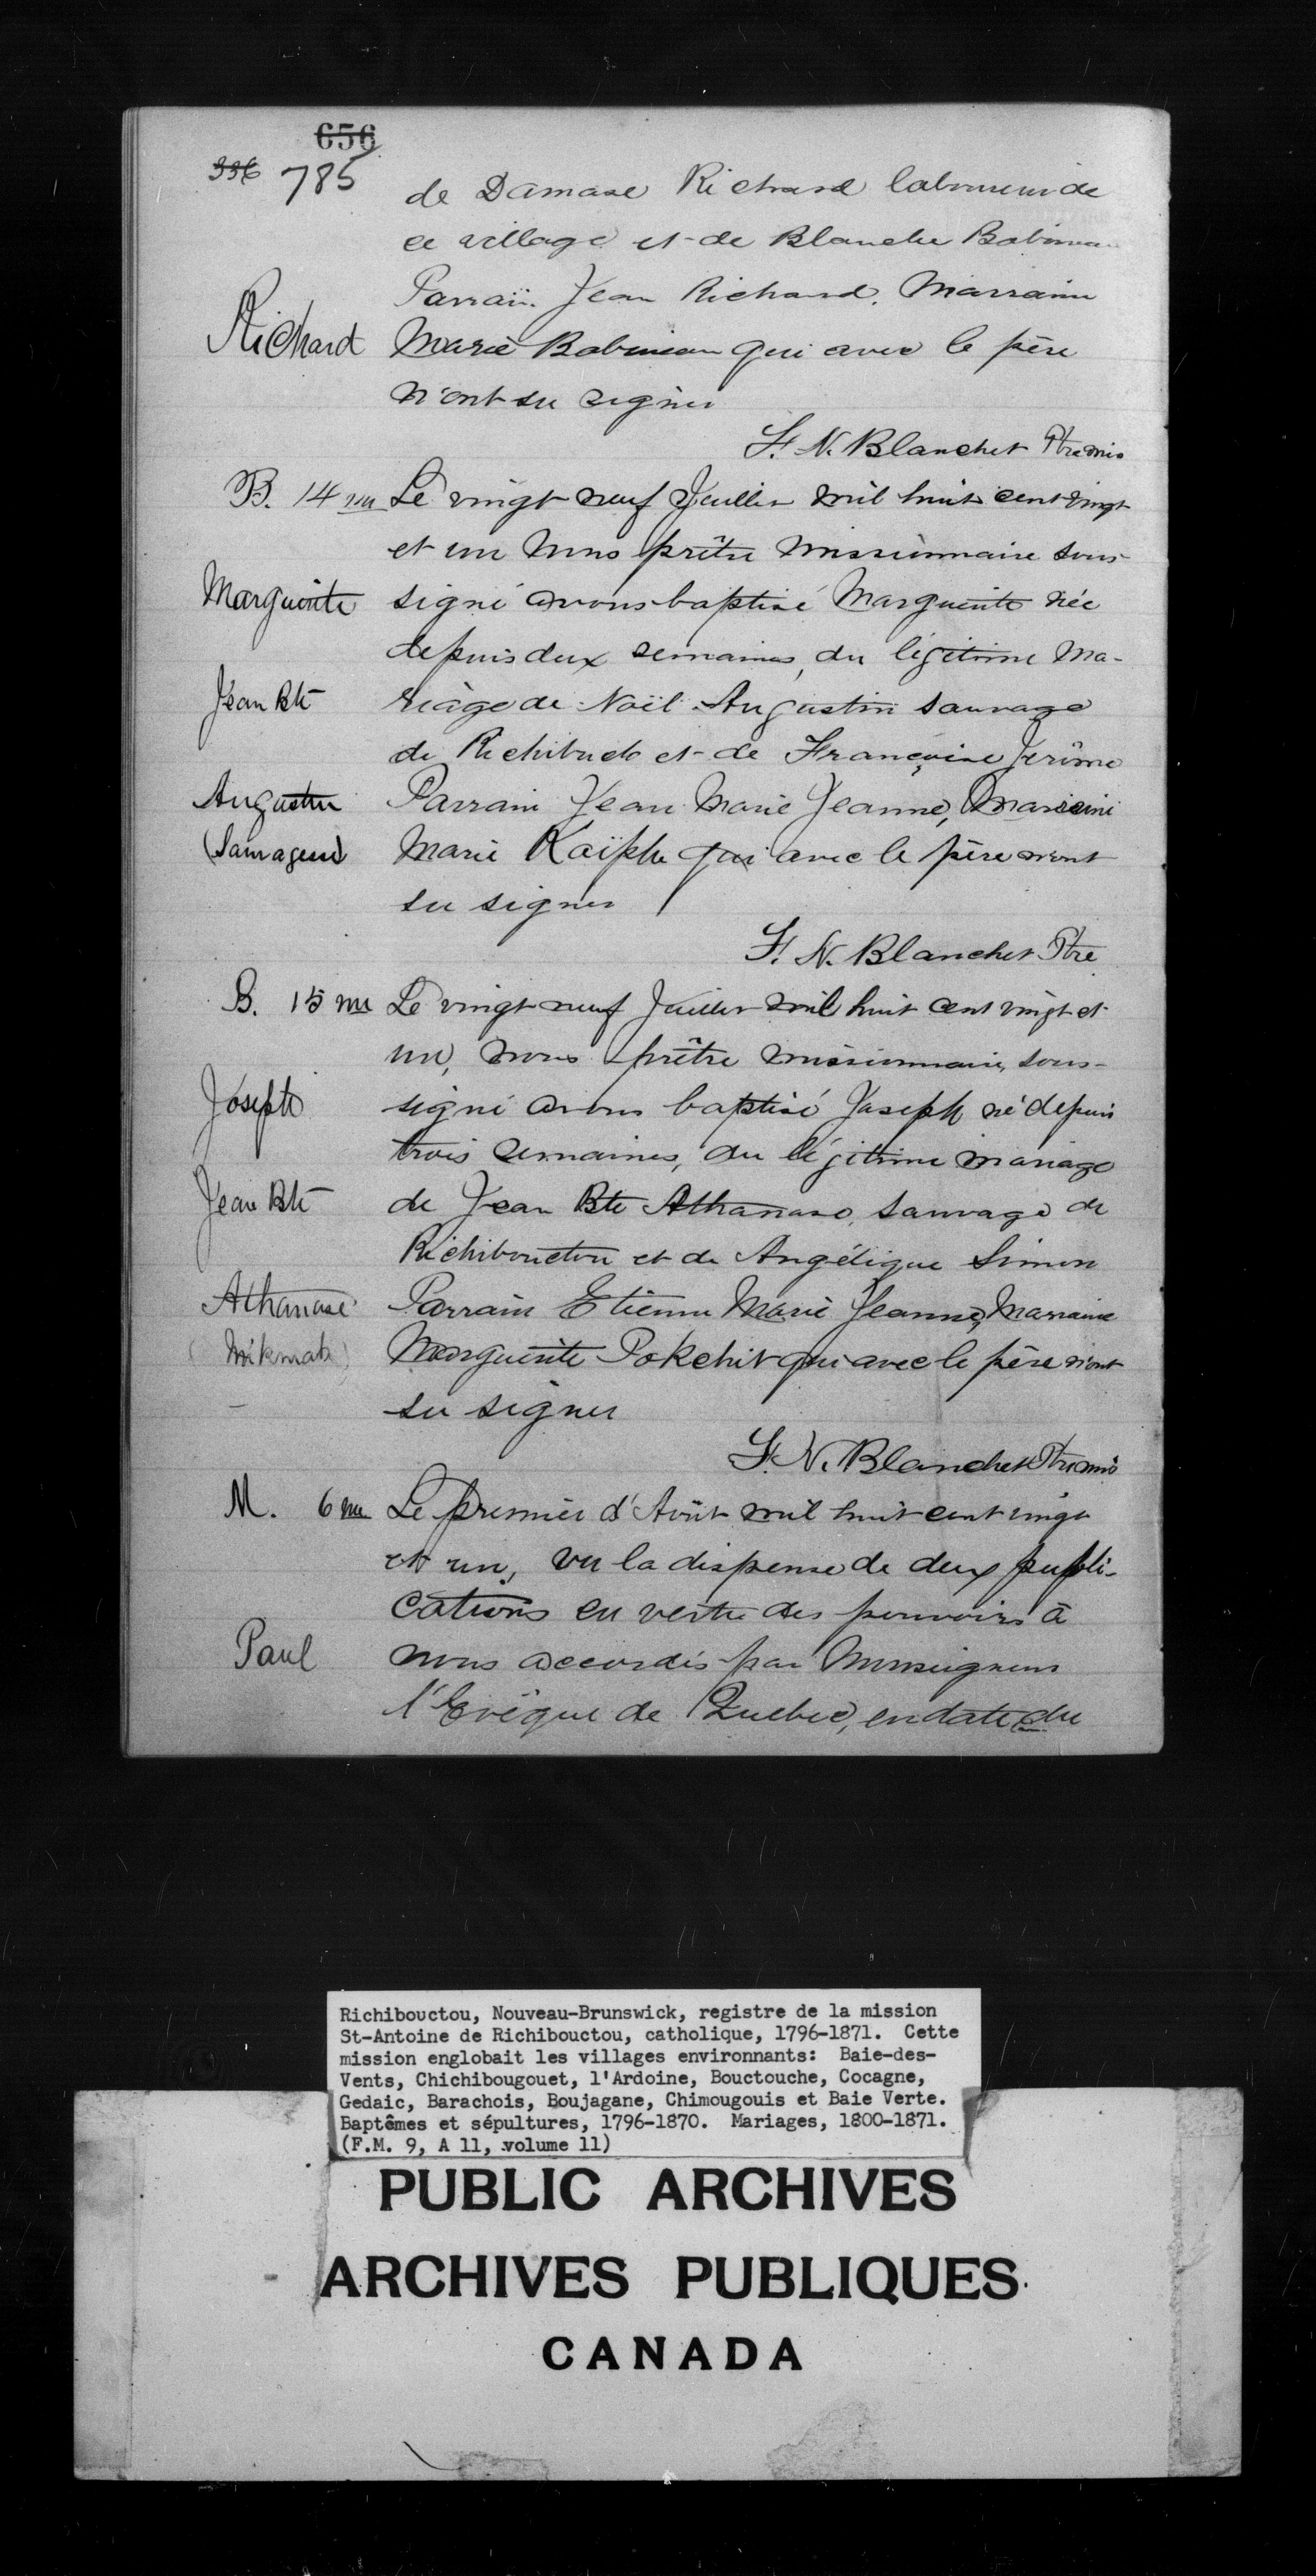 656
336 785
de Damase Richard laboureur de
ce village et de Blanche Babineau
Parrain Jean Richard. Marraine
Richard Marie Babineau qui avec le père
n'ont su signer
F. N. Blanchet Ptre mis
B. 14 me Le vingt neuf Juillet mil huit cent vingt
et un nous prêtre missionnaire sous-
Marguerite signé avons baptisé Marguerite née
depuis deux semaines, du légitime ma-
Jean Bte riage de Noël Augustin sauvage
de Richibucto et de Françoise Jérôme
Augustin Parrain Jean Marie Jeanne, Marraine
(Sauvagesse) Marie Kaïphe qui avec le père n'ont
su signer
F. N. Blanchet Ptre
B. 15 me Le vingt neuf Juillet mil huit cent vingt et
un, nous prêtre missionnaire, sous-
Joseph signé avons baptisé Joseph né depuis
trois semaines, du légitime mariage
Jean Bte de Jean Bte Athanase, sauvage de
Richibouctou et de Angélique Simon
Athanase Parrain Etienne Marie Jeanne, Marraine
(Mikmak) Marguerite Pokchit qui avec le père n'ont
su signer
F. N. Blanchet Ptre mis
M. 6 me Le premier d'Août mil huit cent vingt
et un, vu la dispense de deux publi-
cations en vertu des pouvoirs à
Paul nous accordés par Monseigneur
l'Evêque de Quebec, en date du
Richibouctou, Nouveau-Brunswick, registre de la mission
St-Antoine de Richibouctou, catholique, 1796-1871. Cette
mission englobait les villages environnants: Baie-des-
Vents, Chichibougouet, l'Ardoine, Bouctouche, Cocagne,
Gedaic, Barachois, Boujagane, Chimougouis et Baie Verte.
Baptêmes et sépultures, 1796-1870. Mariages, 1800-1871.
(F.M. 9, A 11, volume 11)
PUBLIC ARCHIVES
ARCHIVES PUBLIQUES
CANADA